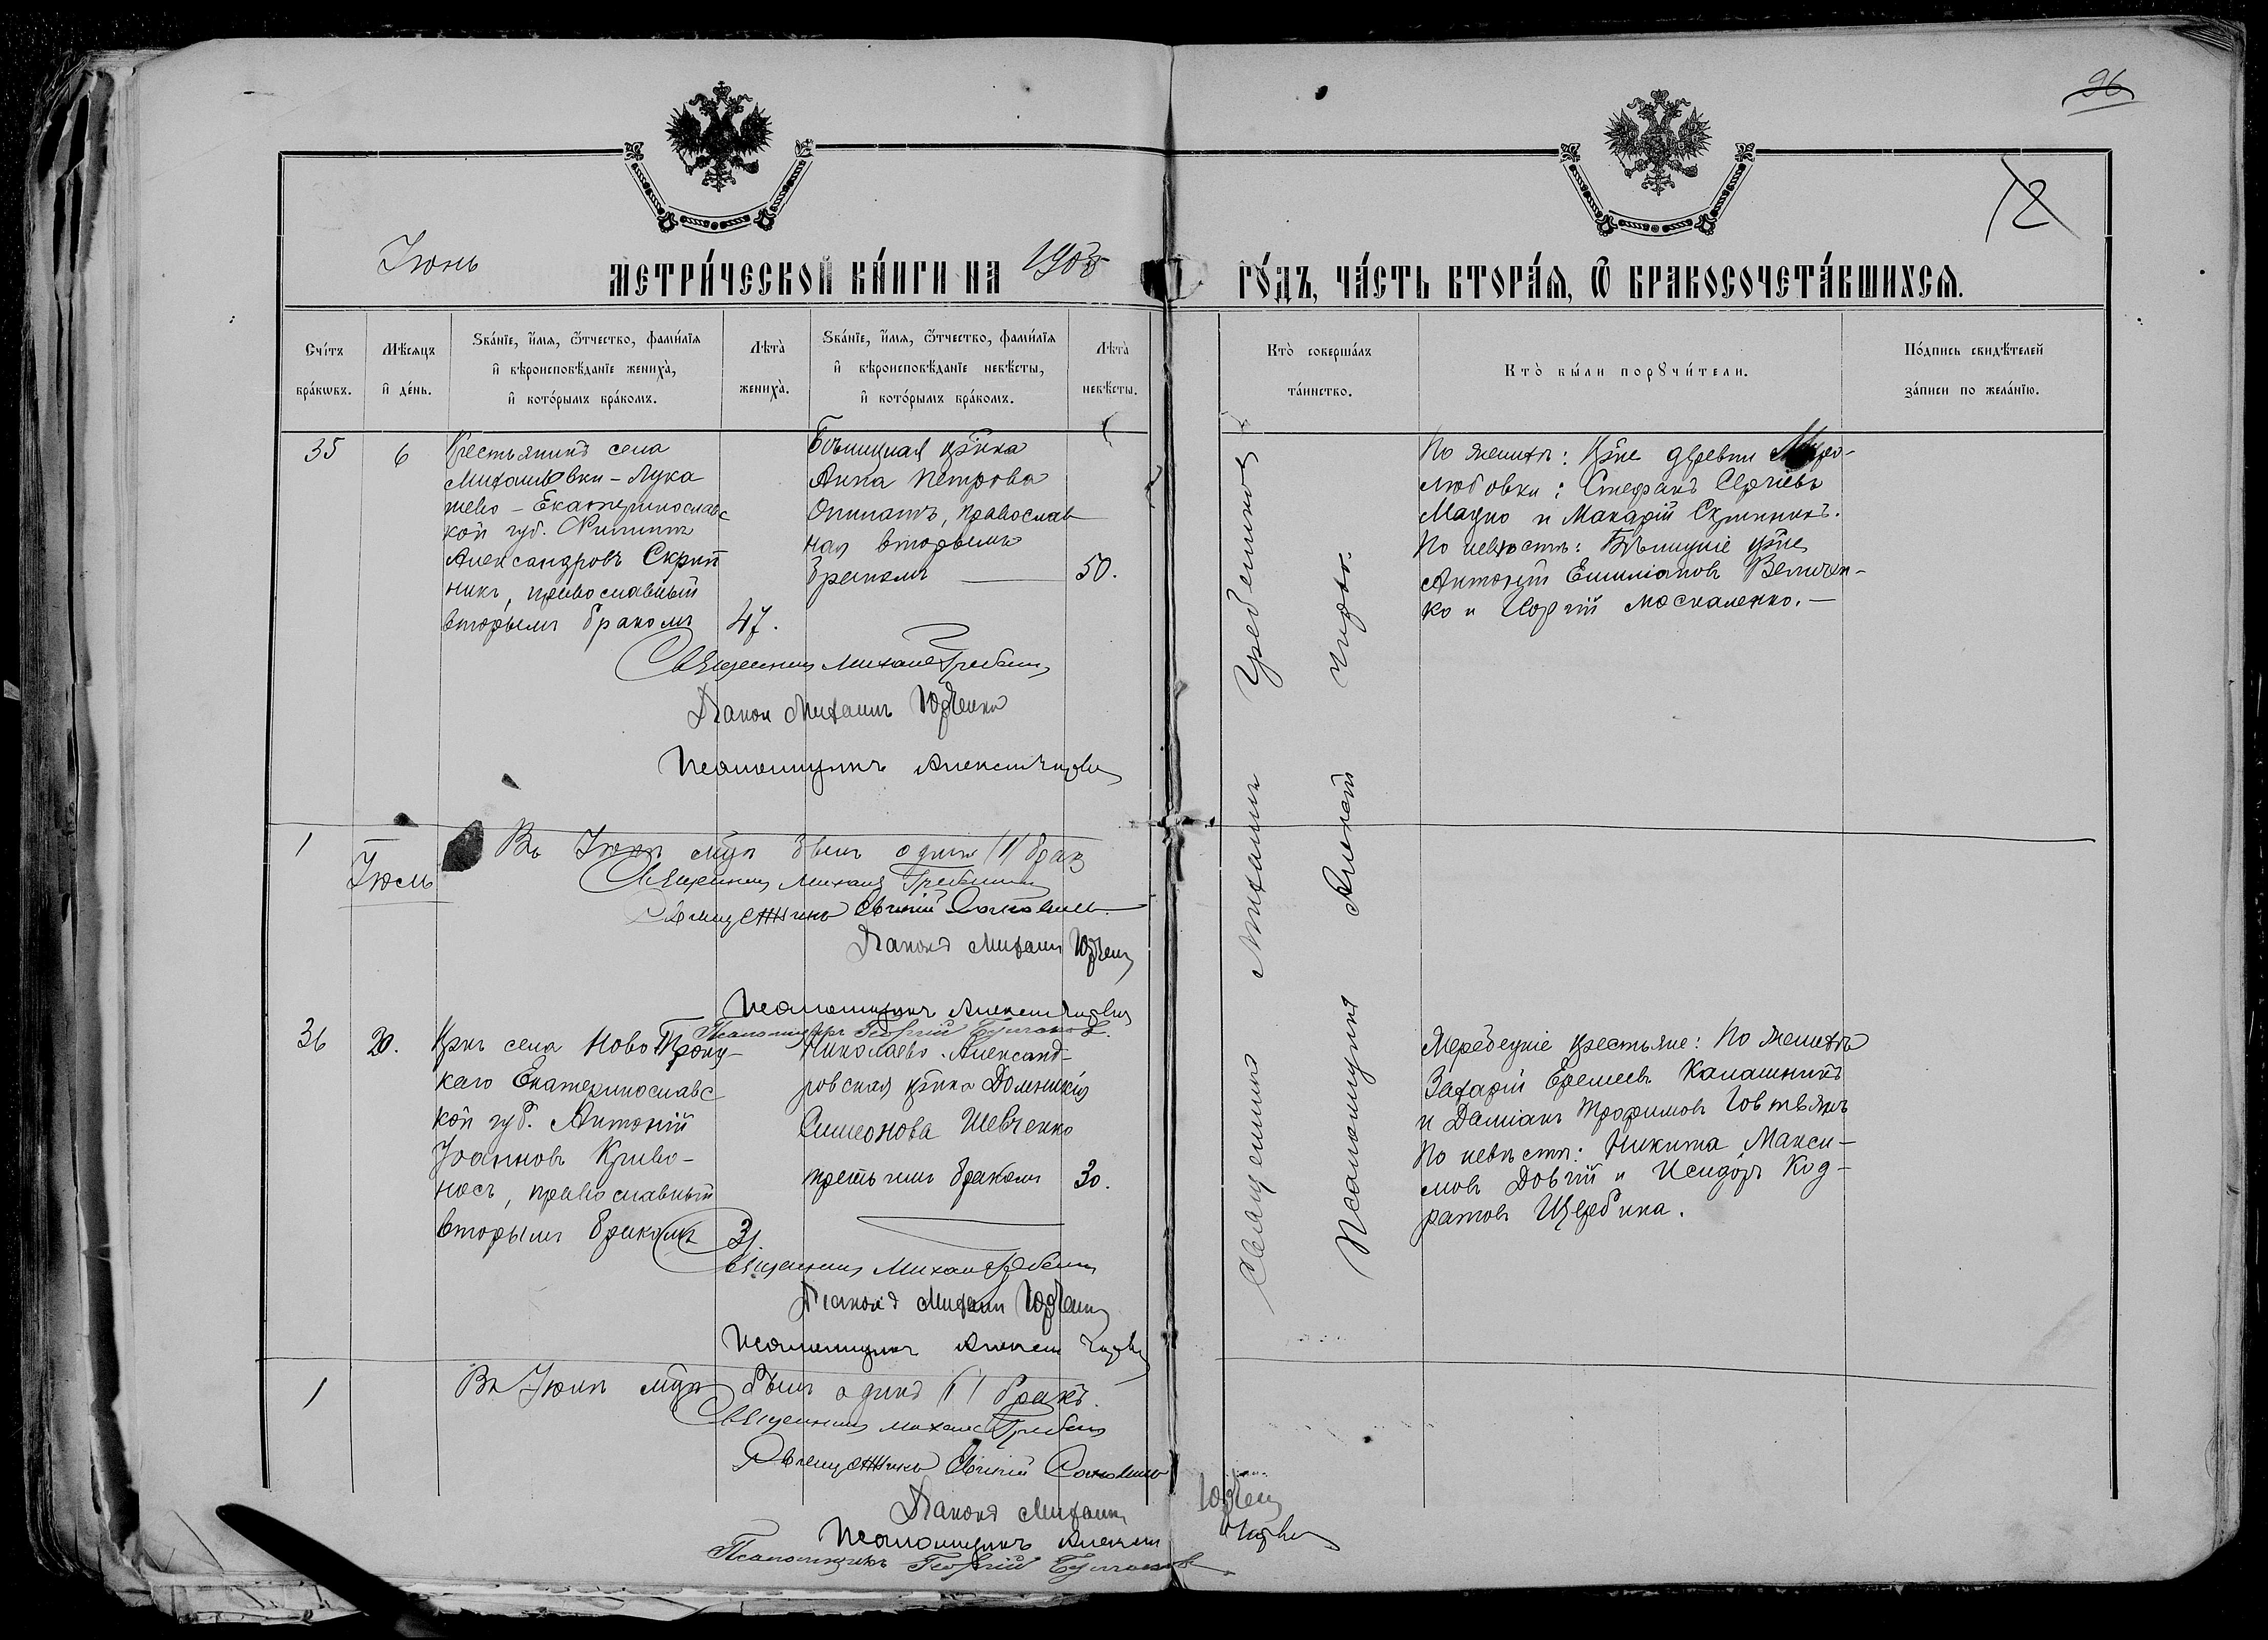 96
12
Іюнь
МЕТРИ́ЧЕСКОЙ КНИ́ГИ НА 1908
ГО́ДЪ, ЧА́СТЬ ВТОРА́Я, Ѿ БРАКОСОЧЕТА́ВШИХСЯ.
Сче́тъ
бра́кωвъ.
Мѣ́сяцъ
и҆ де́нь.
Зва́нїе, и҆́мя, ѻ҆́тчество, фами́лїя
и҆ вѣроисповѣ́данїе жениха̀,
и҆ кото́рымъ бра́комъ.
Лѣта̀
жениха̀.
Зва́нїе, и҆́мя, ѻ҆́тчество, фами́лїя
и҆ вѣроисповѣ́данїе невѣ́сты,
и҆ кото́рымъ бра́комъ.
Лѣта̀
невѣ́сты.
Кто̀ соверша́лъ
та́инство.
Кто̀ бы́ли порꙋчи́тели.
По́дпись свидѣ́телей
за́писи по жела́нїю.
35
6
Крестьянинъ села
Михайловки - Лука
шево - Екатеринославс
кой губ. Филиппъ
Александровъ Скрип
никъ, православный
вторымъ бракомъ
47.
Анна Петрова
православ
ная вторымъ
бракомъ
50.
Священникъ Михаилъ Гребенниковъ
Псаломщикъ Алексей Чирвъ.
По женихѣ: Кр̃не деревни Миро-
любовки: Стефанъ Сергіевъ
Мацко и Макарій Скрипникъ.
По невѣстѣ: кр̃не
Антоній Емиліановъ Величен-
ко и Георгій Москаленко.-
Священникъ Михаилъ
Діаконъ Михаилъ Юрченко
Псаломщикъ Алексей
1
Въ Іюнѣ мц̃ѣ былъ одинъ /1/ бракъ
Іюль
Священникъ Михаилъ
Священникъ Евгеній
Діаконъ Михаилъ
Псаломщикъ Алексей
Псаломщикъ Георгій
36
20.
Крнъ села Ново-Троиц-
каго Екатеринославс
кой губ. Антоній
Іоанновъ Криво-
носъ, православный
вторымъ бракомъ
31.
Николаево-Александ-
ровская кр̃нка Домникія
Симеонова Шевченко
третьимъ бракомъ
30.
крестьяне: По женихѣ
Захарій Еремеевъ Калашникъ
и Даміанъ Трофимовъ Говтвянъ
По невѣстѣ: Никита Макси-
мовъ Довгій и Исидоръ Код-
ратовъ Щербина.
Священникъ Михаилъ
Діаконъ Михаилъ
Псаломщикъ Алексей
1
Въ Іюлѣ мц̃ѣ былъ одинъ /1/ бракъ.
Священникъ Михаилъ
Священникъ Евгеній
Діаконъ Михаилъ
Псаломщикъ Алексей
Псаломщикъ Георгій